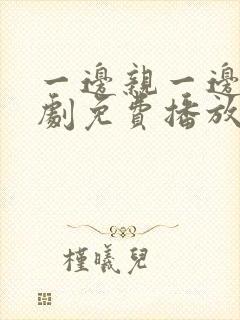 一邊親一邊
劇免費播放
槿曦兒